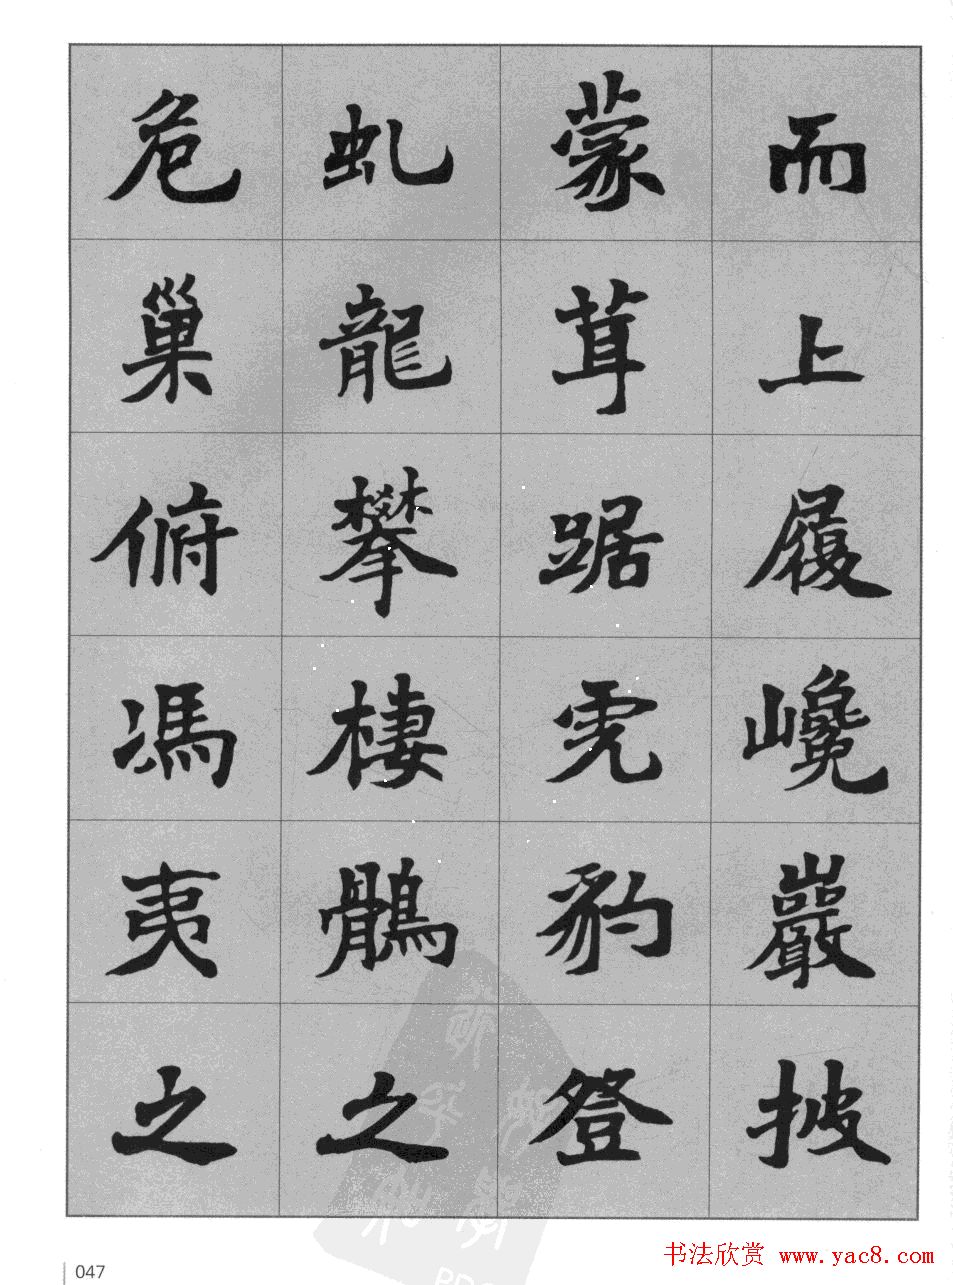 而上履巉巖披
蒙茸踞虎豹登
虬龍攀棲鶻之
危巢俯馮夷之
047
书法欣赏 www.yac8.com